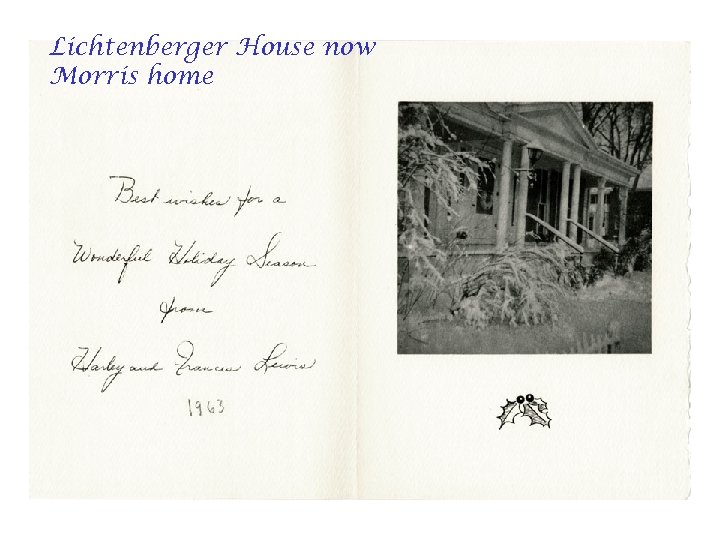 Lichtenberger House now
Morris home
Best wishes for a
Wonderful Holiday Season
from
Harley and Frances Lewis
1963